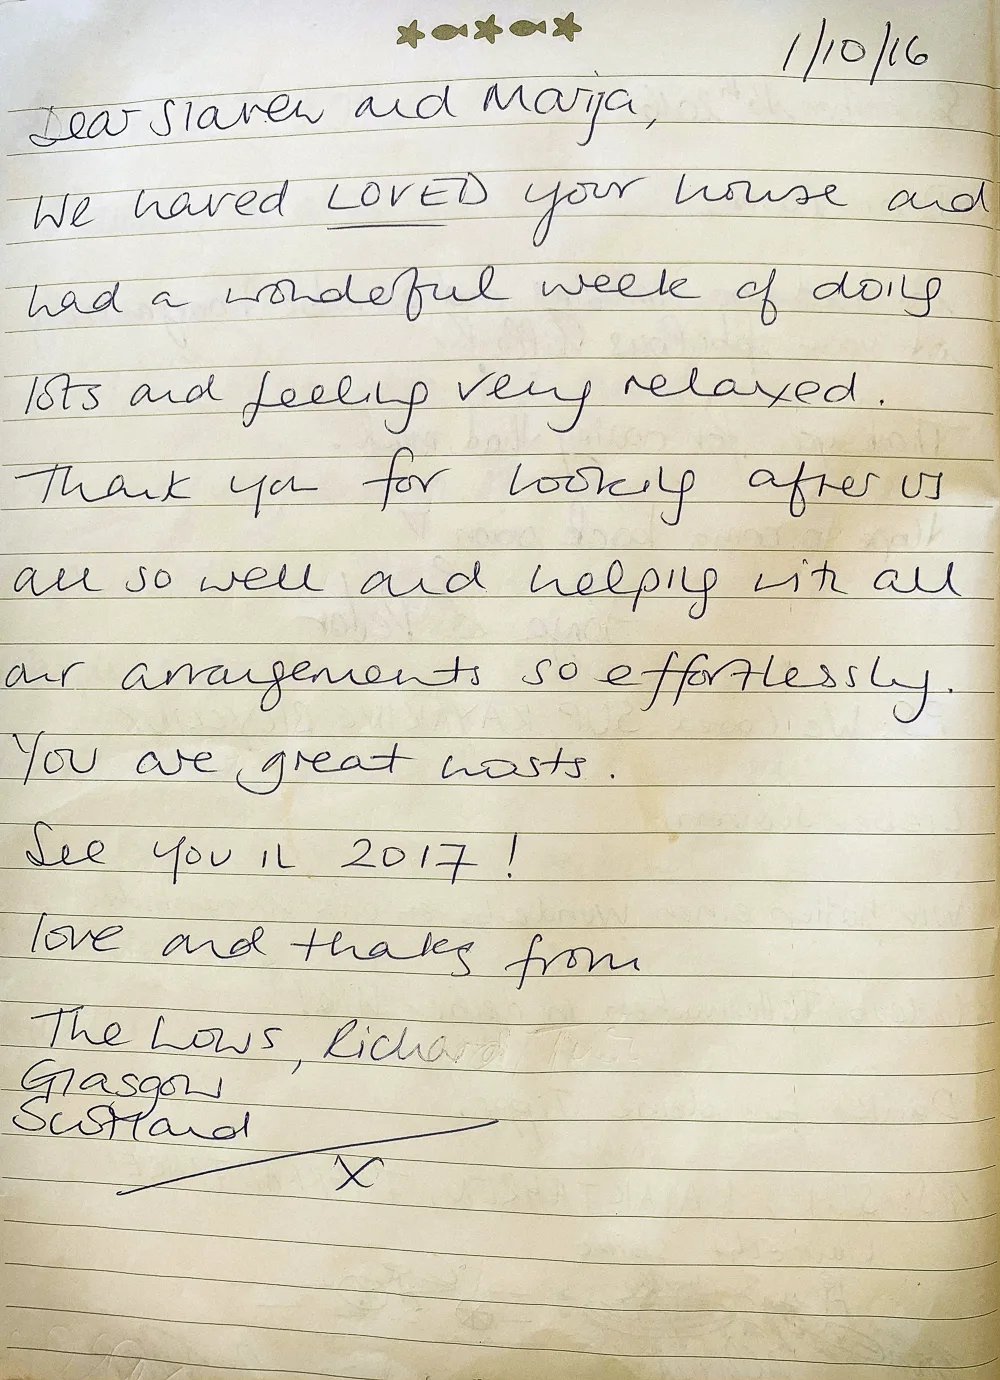 1/10/16
Dear Slaven and Marija,
We haved LOVED your house and
had a wondeful week of doing
lots and feeling very relaxed.
Thank you for looking after us
all so well and helping with all
our arrangements so effortlessly.
You are great hosts.
See you in 2017!
love and thanks from
The Lows, Richard
Glasgow
Scotland
X